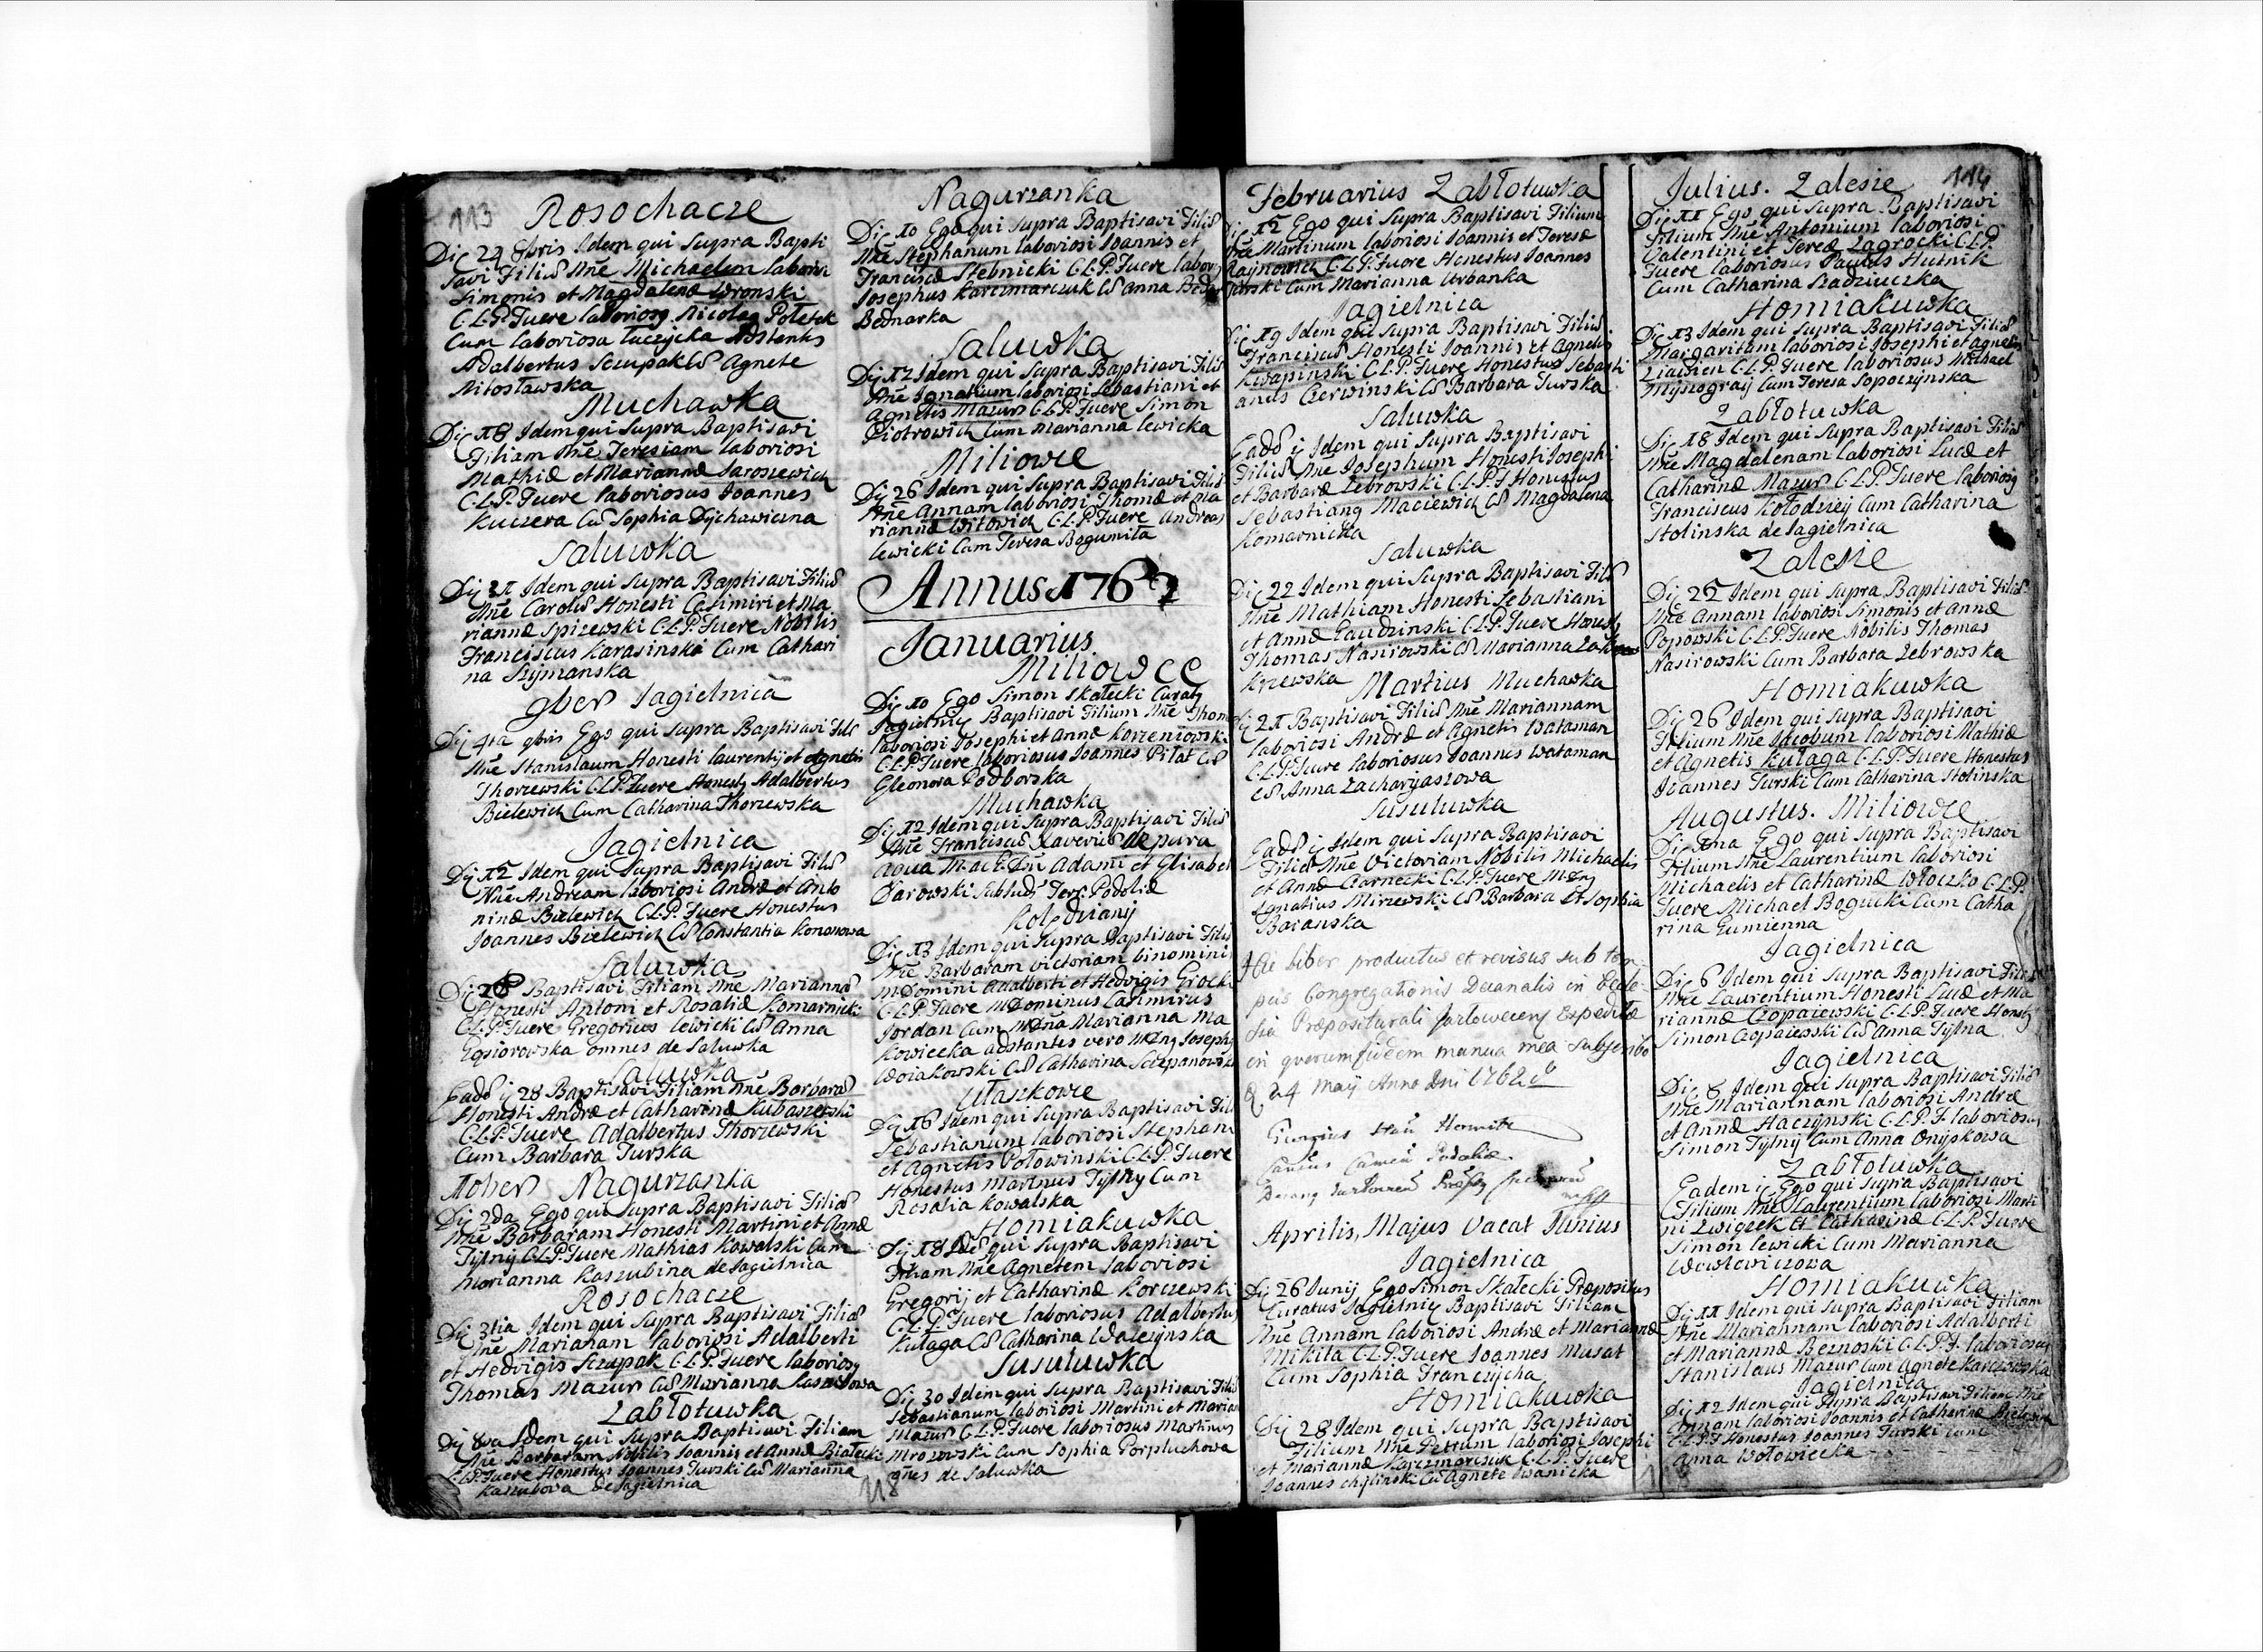 113
Rosochacze
Die 24 8bris Idem qui Supra Bapti
savi Filiũ Nñe Michaelem laboriosi
Simonis et Magdalenæ Wronski
C.L.P. Fuere laboriosq Nicolaq
Cum laboriosa Łuczycka Astentes
Adalbertus Sczupak Cũ Agnete
Miłosławska
Muchawka
Die 18 Idem qui Supra Baptisavi
Filiam Nñe Teresiam laboriosi
Mathiæ et Mariannæ Jarosiewich
C.L.P. Fuere laboriosus Joannes
Kuczera Cũ Sophia Dychawiczna
Saluwka
Die 31 Idem qui Supra Baptisavi Filiũ
Nñe Carolũ Honesti Casimiri et Ma
riannæ Spizewski C.L.P. Fuere Nobilis
Franciscus Karasinski Cum Cathari
na Szymanska
9ber Jagielnica
Die 4ta 9bris Ego qui Supra Baptisavi Filũ
Nñe Stanislaum Honesti Laurentij et Agnetis
Thorzewski C.L.P. Fuere Honestq Adalbertus
Bielewich Cum Catharina Thorzewska
Jagielnica
Die 12 Idem qui Supra Baptisavi Filiũ
Nñe Andream laboriosi Andræ et Anto
ninæ Bielewich C.L.P. Fuere Honestus
Joannes Bielewich Cũ Constantia Kononowa
Saluwka
Die 28 Baptisavi Filiam Nñe Mariannã
Honesti Antoni et Rosaliæ Komarnicki
C.L.P. Fuere Gregorius Lewicki Cũ Anna
Egsiorowska omnes de Saluwka
Saluwka
Eadẽ i 28 Baptisavi Filiam Nñe Barbarã
Honesti Andræ et Catharinæ Kubaszewski
C.L.P. Fuere Adalbertus Thorzewski
Cum Barbara Turska
Xober Nagurzanka
Die 2da Ego qui Supra Baptisavi Filiã
Nñe Barbaram Honesti Martini et Annæ
Tylny C.L.P. Fuere Mathias Kowalski Cum
Marianna Kaszubina de Jagielnica
Rosochacze
Die 3tia Idem qui Supra Baptisavi Filiã
Nñe Mariannam laboriosi Adalberti
et Hedvigis Sczupak C.L.P. Fuere laboriosq
Thomas Mazur Cũ Marianna
Zabłotuwka
Die 8va Idem qui Supra Baptisavi Filiam
Nñe Barbaram Nobilis Joannis et Annæ Białecki
C.L.P. Fuere Honestus Joannes Turski Cũ Marianna
Kaszubowa de Jagielnica
Nagurzanka
Die 10 Ego qui Supra Baptisavi Filiũ
Nñe Stephanum laboriosi Joannis et
Franciscæ Stebnicki C.L.P. Fuere laborio
Josephus Karczmarczuk Cũ Anna
Bednarka
Saluwka
Die 12 Idem qui Supra Baptisavi Filiũ
Nñe Ignatium laboriosi Sebastiani et
Agnetis Mazur C.L.P. Fuere Simon
Piotrowich Cum Marianna Lewicka
Miliowce
Die 26 Idem qui Supra Baptisavi Filiã
Nñe Annam laboriosi Thomæ et Ma
riannæ Witowich C.L.P. Fuere Andreas
Lewicki Cum Teresa Bogumiła
Annus 1762
Januarius
Miliowce
Die 10 Ego Simon Skałecki Curatq
Jagielniq Baptisavi Filium Nñe Thom
laboriosi Josephi et Annæ Korzeniowski
C.L.P. Fuere laboriosus Joannes Pilat Cũ
Eleonora Podborska
Muchawka
Die 12 Idem qui Supra Baptisavi Filiũ
Nñe Franciscũ Xaveriũ de pura
aqua M. ac G. Dñi Adami et Elisabet
Darowski Terr. Podoliæ
Kolędziany
Die 13 Idem qui Supra Baptisavi Filiã
Nñe Barbaram Victoriam binomini
M Domini Adalberti et Hedvigis Grocki
C.L.P. Fuere M Dominus Casimirus
Jordan Cum M Dña Marianna Ma
kowiecka adstantes vero M Dnq Josephq
Woiakowski Cũ Catharina Sczepanowska
Ułaszkowce
Die 16 Idem qui Supra Baptisavi Fili
Sebastianum laboriosi Stephani
et Agnetis Połowinski C.L.P. Fuere
Honestus Martinus Tylny Cum
Rosalia Kowalska
Homiakuwka
Die 18 Idẽ qui Supra Baptisavi
Filiam Nñe Agnetem laboriosi
Gregorij et Catharinæ Korczewski
C.L.P. Fuere laboriosus Adalbertus
Kułaga Cũ Catharina Walczynska
Susuluwka
Die 30 Idem qui Supra Baptisavi Filiũ
Sebastianum laboriosi Martini et Marian
Mazur C.L.P. Fuere laboriosus Martinus
Mrozowski Cum Sophia Porpluchowa
oẽs de Saluwka
118
Februarius Zabłotuwka
Die 12 Ego qui Supra Baptisavi Filium
Nñe Martinum laboriosi Joannis et Teresæ
Raynowich C.L.P. Fuere Honestus Joannes
Turski Cum Marianna Urbanka
Jagielnica
Die 19 Idem qui Supra Baptisavi Filiũ
Franciscũ Honesti Joannis et Agnetis
Kwapinski C.L.P. Fuere Honestus Sebasti
anus Czerwinski Cũ Barbara Turska
Saluwka
Eadẽ i Idem qui Supra Baptisavi
Filiũ Nñe Josephum Honesti Josephi
et Barbaræ Zebrowski C.L.P. F Honestus
Sebastianq Maciewich Cũ Magdalena
Komarnicka
Saluwka
Die 22 Idem qui Supra Baptisavi Filiũ
Nñe Mathiam Honesti Sebastiani
et Annæ Gaudzinski C.L.P. Fuere Honestq
Thomas Nasirowski Cũ Marianna
Krzewska
Martius Muchawka
Die 21 Baptisavi Filiã Nñe Mariannam
laboriosi Andræ et Agnetis Wataman
C.L.P. Fuere laboriosus Joannes Wataman
Cũ Anna Zacharyaszowa
Susuluwka
Eadẽ i Idem qui Supra Baptisavi
Filiã Nñe Victoriam Nobilis Michaelis
et Annæ Czarnecki C.L.P. Fuere M. Dnq
Ignatius Mirzewski Cũ Barbara et Sophia
Baranska
Hic Liber productus et revisus sub tem
pus Congregationis Decanalis in Eccle
sia Præpositurali Jazłowecen Expeditæ
in quorum fidem manua mea subscribo
D 24 Maij Anno Dni 1762do
Aprilis, Majus Vacat Junius
Jagielnica
Die 26 Junij Ego Simon Skałecki Præpositus
Curatus Jagielniq Baptisavi Filiam
Nñe Annam laboriosi Andræ et Mariannæ
Mikita C.L.P. Fuere Joannes Musat
Cum Sophia Franczycha
Homiakuwka
Die 28 Idem qui Supra Baptisavi
Filium Nñe Petrum laboriosi Josephi
et Mariannæ Karczmarczuk C.L.P. Fuere
Joannes Chylinski Cũ Agnete Iwanicka
114
Julius. Zalesie
Die 11 Ego qui Supra Baptisavi
Filium Nñe Antonium laboriosi
Valentini et Tereæ Zagrocki C.L.P.
Fuere laboriosus Paulus Hutnik
Cum Catharina Sładziuczka
Homiakuwka
Die 13 Idem qui Supra Baptisavi Filiã
Margaritam laboriosi Josephi et Agnetis
C.L.P. Fuere laboriosus Michael
Mysnograij Cum Teresa Sopoczynska
Zabłotuwka
Die 18 Idem qui Supra Baptisavi Filiã
Nñe Magdalenam laboriosi Lucæ et
Catharinæ Mazur C.L.P. Fuere laboriosq
Franciscus Kołodziey Cum Catharina
Stolinska de Jagielnica
Zalesie
Die 22 Idem qui Supra Baptisavi Filiã
Nñe Annam laboriosi Simonis et Annæ
Popowski C.L.P. Fuere Nobilis Thomas
Nasirowski Cum Barbara Zebrowska
Homiakuwka
Die 26 Idem qui Supra Baptisavi
Filium Nñe Jacobum laboriosi Mathiæ
et Agnetis Kułaga C.L.P. Fuere Honestus
Joannes Turski Cum Catharina Stolinska
Augustus. Miliowce
Die 1ma Ego qui Supra Baptisavi
Filium Nñe Laurentium laboriosi
Michaelis et Catharinæ Włoczko C.L.P.
Fuere Michael Bogucki Cum Catha
rina Gumienna
Jagielnica
Die 6 Idem qui Supra Baptisavi Filiũ
Nñe Laurentium Honesti Lucæ et Ma
riannæ Czopaiewski C.L.P. Fuere Honestq
Simon Czopaiewski Cũ Anna Tylna
Jagielnica
Die 8 Idem qui Supra Baptisavi Filiã
Nñe Mariannam laboriosi Andræ
et Annæ Haczynski C.L.P. F. laboriosus
Simon Tylny Cum Anna Onyskowa
Zabłotuwka
Eadem i Ego qui Supra Baptisavi
Filium Nñe Laurentium laboriosi Marti
ni et Catharinæ C.L.P. Fuere
Simon Lewicki Cum Marianna
Wawlewiczowa
Homiakuwka
Die 11 Idem qui Supra Baptisavi Filiam
Nñe Mariannam laboriosi Adalberti
et Mariannæ Beznoski C.L.P. F. laboriosus
Stanislaus Mazur Cum Agnete
Jagielnica
Die 12 Idem qui Supra Baptisavi Filiam Nñe
Annam laboriosi Joannis et Catharinæ
C.L.P. F Honestus Joannes Turski Cum
Anna Wołowiecka